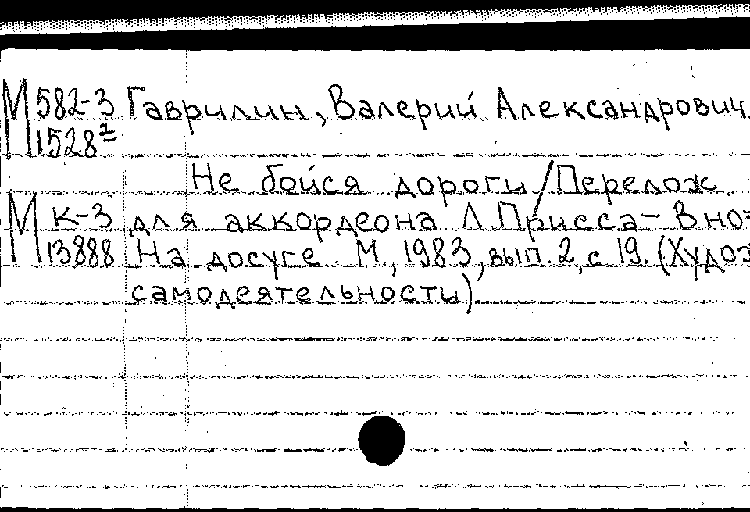 М 582-3 Гаврилин, Валерий Александрович
П 1528²
Не бойся дороги / Перелож.
М К-3 для аккордеона Л. Присса - В но
П 13888 На досуге М., 1983, вып. 2, с 19. (Худож
самодеятельности).